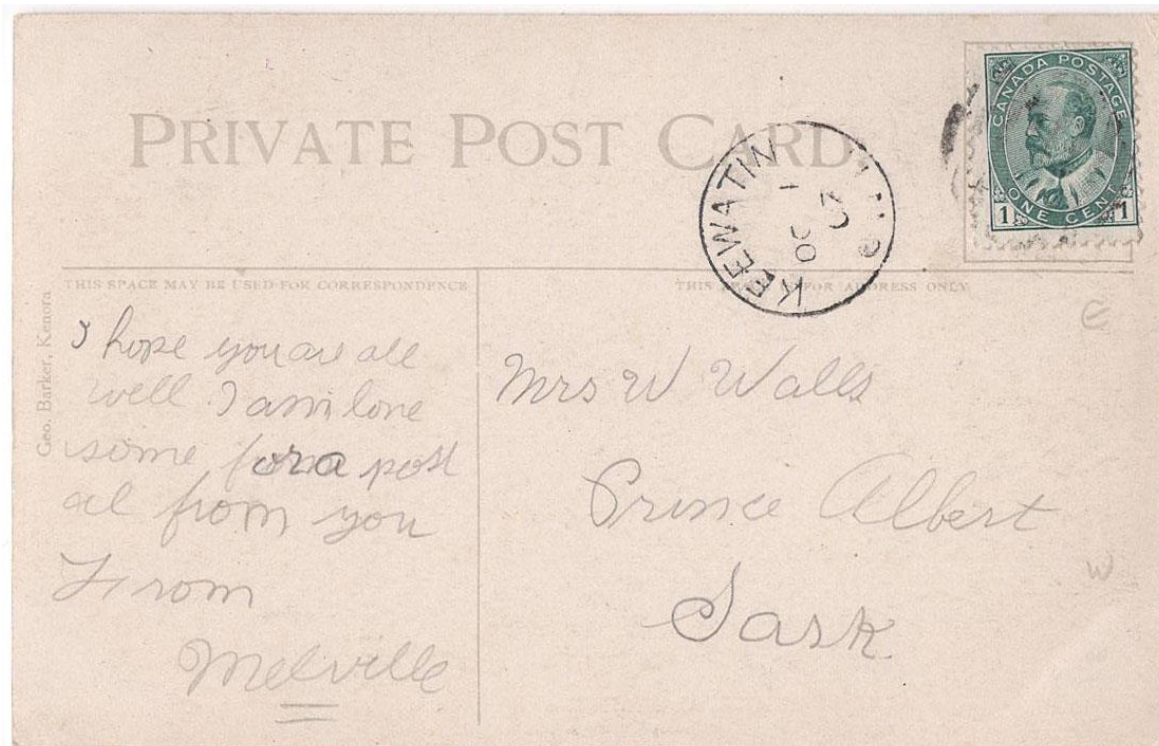 PRIVATE POST CARD
CANADA POSTAGE
1 ONE CENT 1
KEEWATIN
THIS SPACE MAY BE USED FOR CORRESPONDENCE
THIS FOR ADDRESS ONLY
Geo. Barker, Kenora
I hope you are all
well I am lone
some for a post
al from you
From
Melville
Mrs W Walls
Prince Albert
Sask
E
W